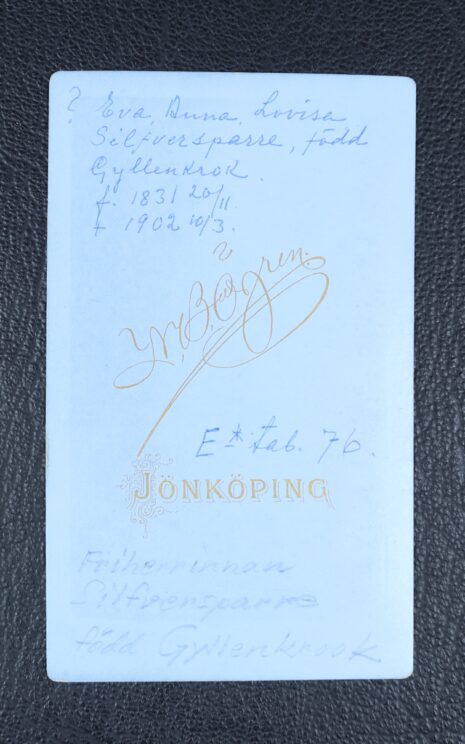 ? Eva, Anna, Lovisa
Silfversparre, född
Gyllenkrok.
f. 1831 20/11.
† 1902 10/3.
?
E* tab. 76.
JÖNKÖPING
Friherrinnan
Silfversparre
född Gyllenkrook